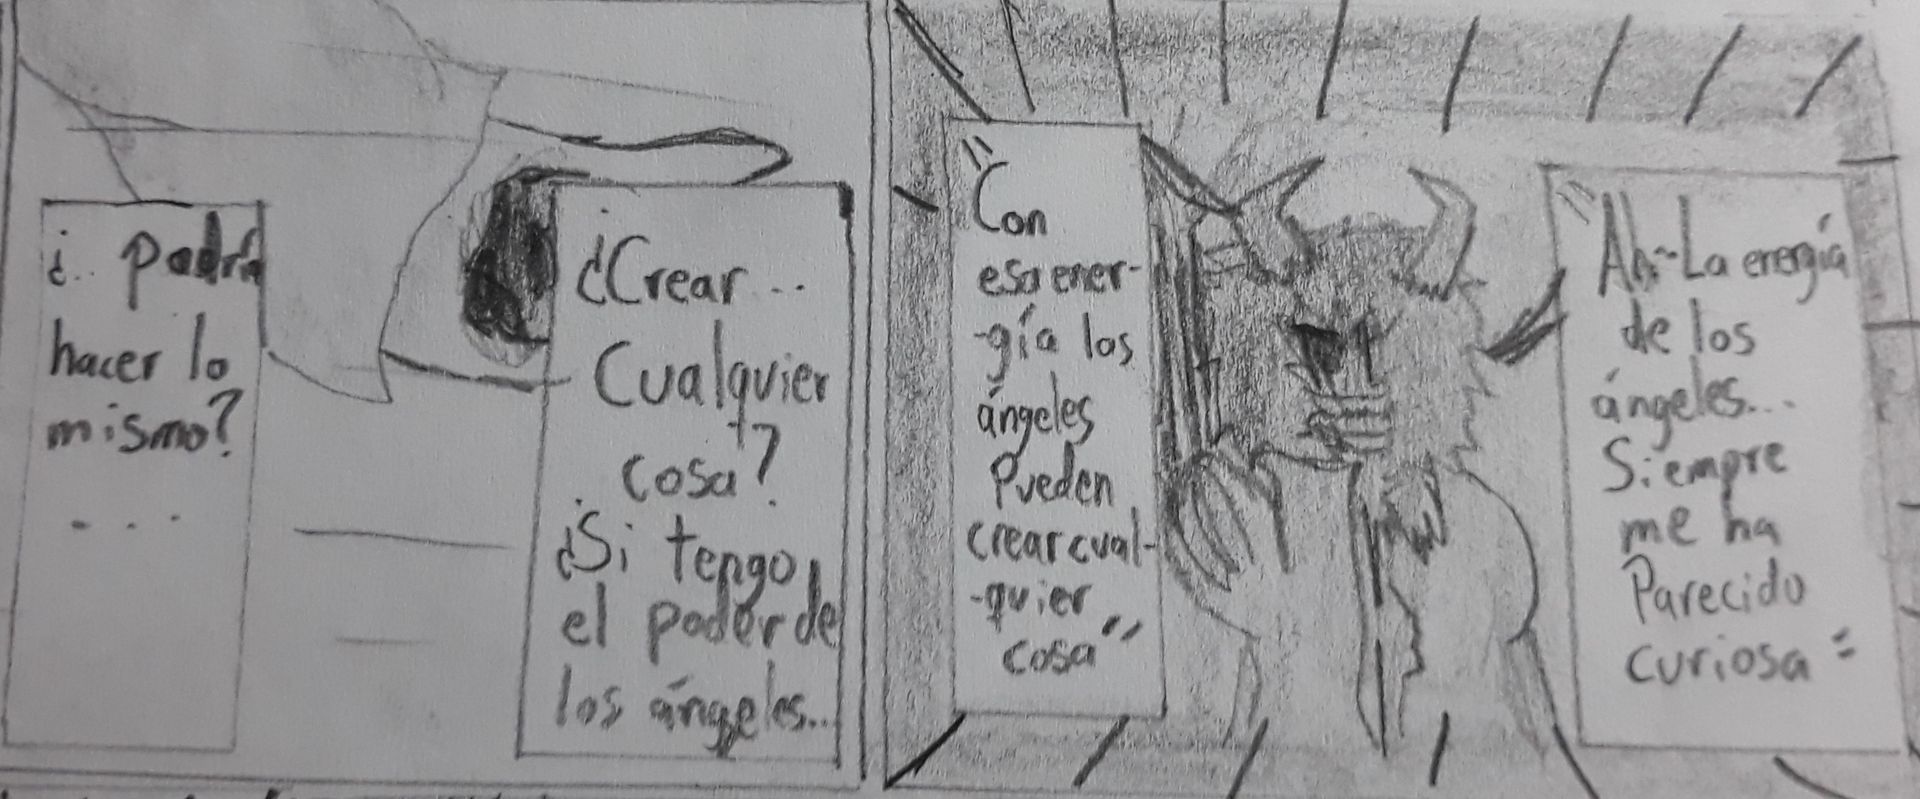 "Ah~ La energía
de los
ángeles...
Siempre
me ha
Parecido
curiosa"
"Con
esa ener-
-gía los
ángeles
Pueden
crear cual-
-quier
cosa"
¿Crear...
Cualquier
cosa?
¿Si tengo
el poder de
los ángeles...
¿.. podría
hacer lo
mismo?
...